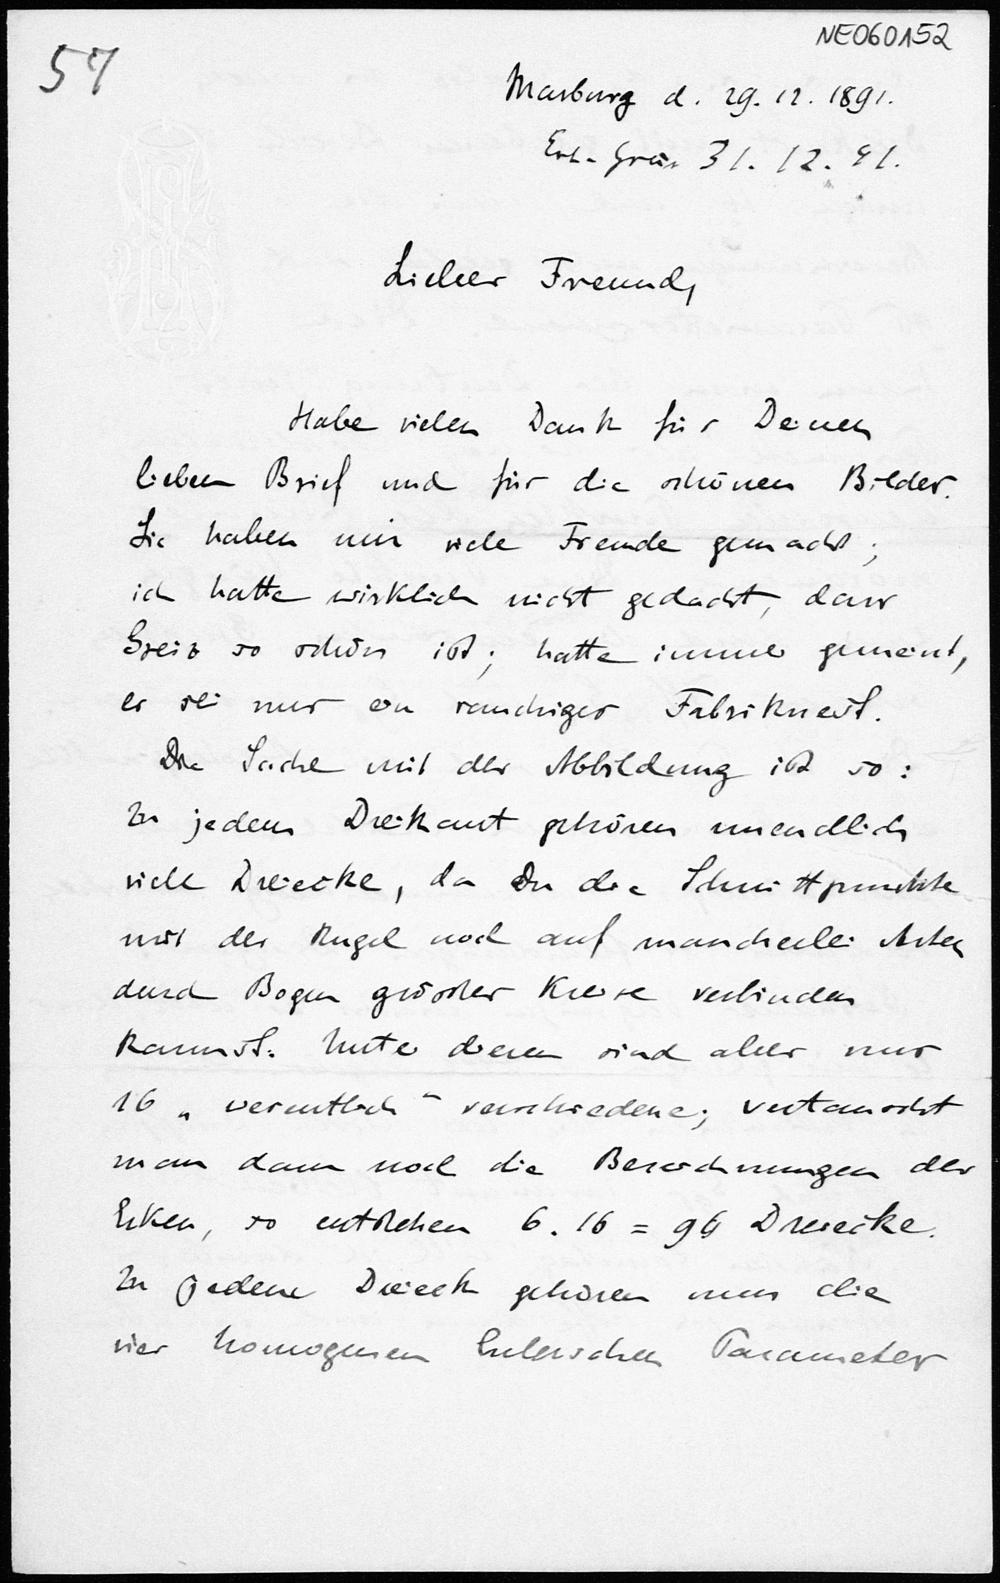 NE060152
57
Marburg d. 29. 12. 1891.
31. 12. 91.
Lieber Freund,
Habe vielen Dank für Deinen
lieben Brief und für die schönen Bilder.
Sie haben mir viele Freude gemacht;
ich hatte wirklich nicht gedacht, dass
Greiz so schön ist; hatte immer gemeint,
es sei nur ein rauchiges Fabriknest.
Die Sache mit der Abbildung ist so:
Zu jedem Dreikant gehören unendlich
viele Dreiecke, da Du die Schnittpunkte
mit der Kugel noch auf mancherlei Arten
durch Bogen grösster Kreise verbinden
kannst. Unter denen sind aber nur
16 „wesentlich“ verschiedene; vertauscht
man dann noch die Bezeichnungen der
Ecken, so entstehen 6 . 16 = 96 Dreiecke.
Zu jedem Dreieck gehören nun die
vier homogenen Eulerschen Parameter